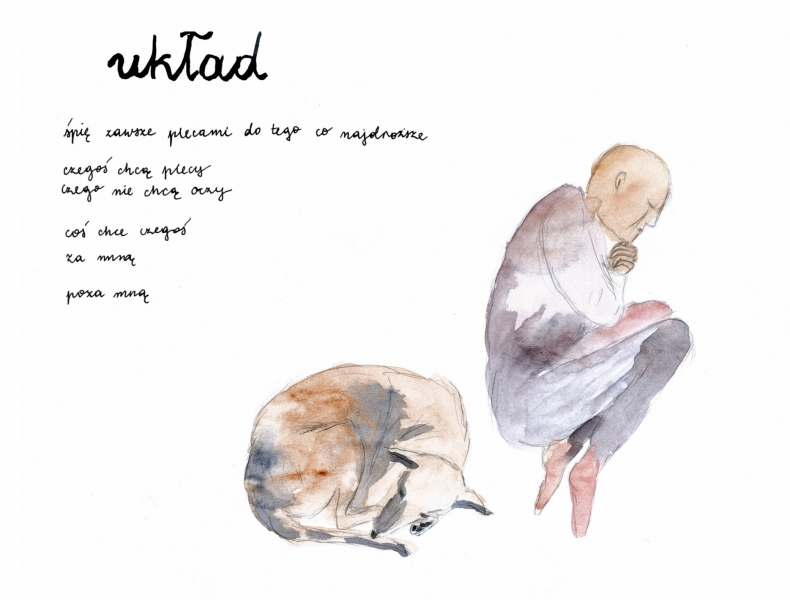 układ
śpię zawsze plecami do tego co najdroższe
czegoś chcą plecy
czego nie chcą oczy
coś chce czegoś
za mną
poza mną